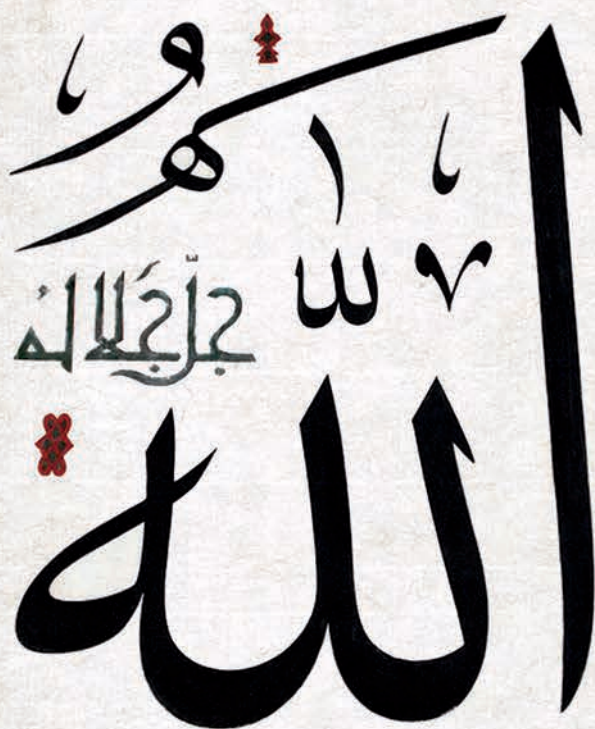 اللّٰهُ
جلّ جَلالهُ